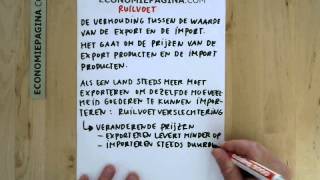 ECONOMIEPAGINA.COM
ECONOMIEPAGINA.COM
RUILVOET
DE VERHOUDING TUSSEN DE WAARDE
VAN DE EXPORT EN DE IMPORT.
HET GAAT OM DE PRIJZEN VAN DE
EXPORT PRODUCTEN EN DE IMPORT
PRODUCTEN.
ALS EEN LAND STEEDS MEER MOET
EXPORTEREN OM DEZELFDE HOEVEEL-
HEID GOEDEREN TE KUNNEN IMPOR-
TEREN: RUILVOETVERSLECHTERING
↳ VERANDERENDE PRIJZEN
- EXPORTEREN LEVERT MINDER OP
- IMPORTEREN STEEDS DUURD